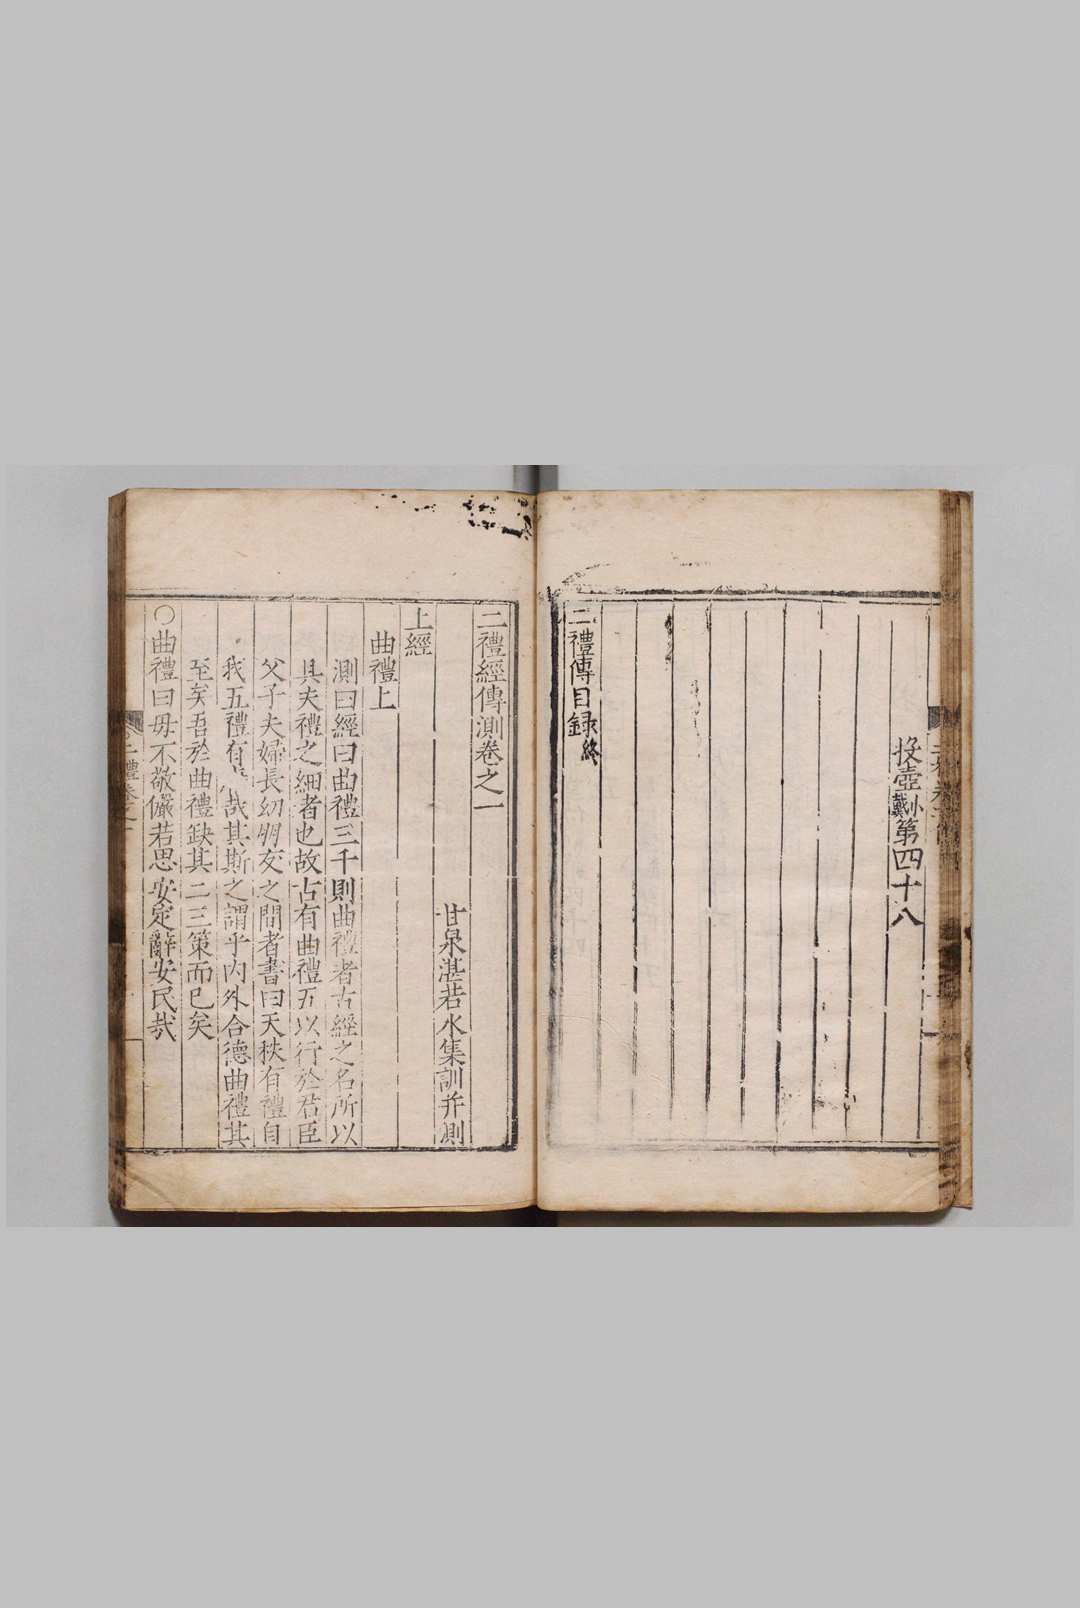 投壺小戴第四十八
二禮傳目録終
二禮經傳測卷之一
甘泉湛若水集訓并測
上經
曲禮上
測曰經曰曲禮三千則曲禮者古經之名所以
具夫禮之細者也故古有曲禮五以行於君臣
父子夫婦長幼朋友之間者書曰天秩有禮自
我五禮有哉其斯之謂乎内外合德曲禮其
至矣吾於曲禮缺其二三策而已矣
○曲禮曰毋不敬儼若思安定辭安民哉